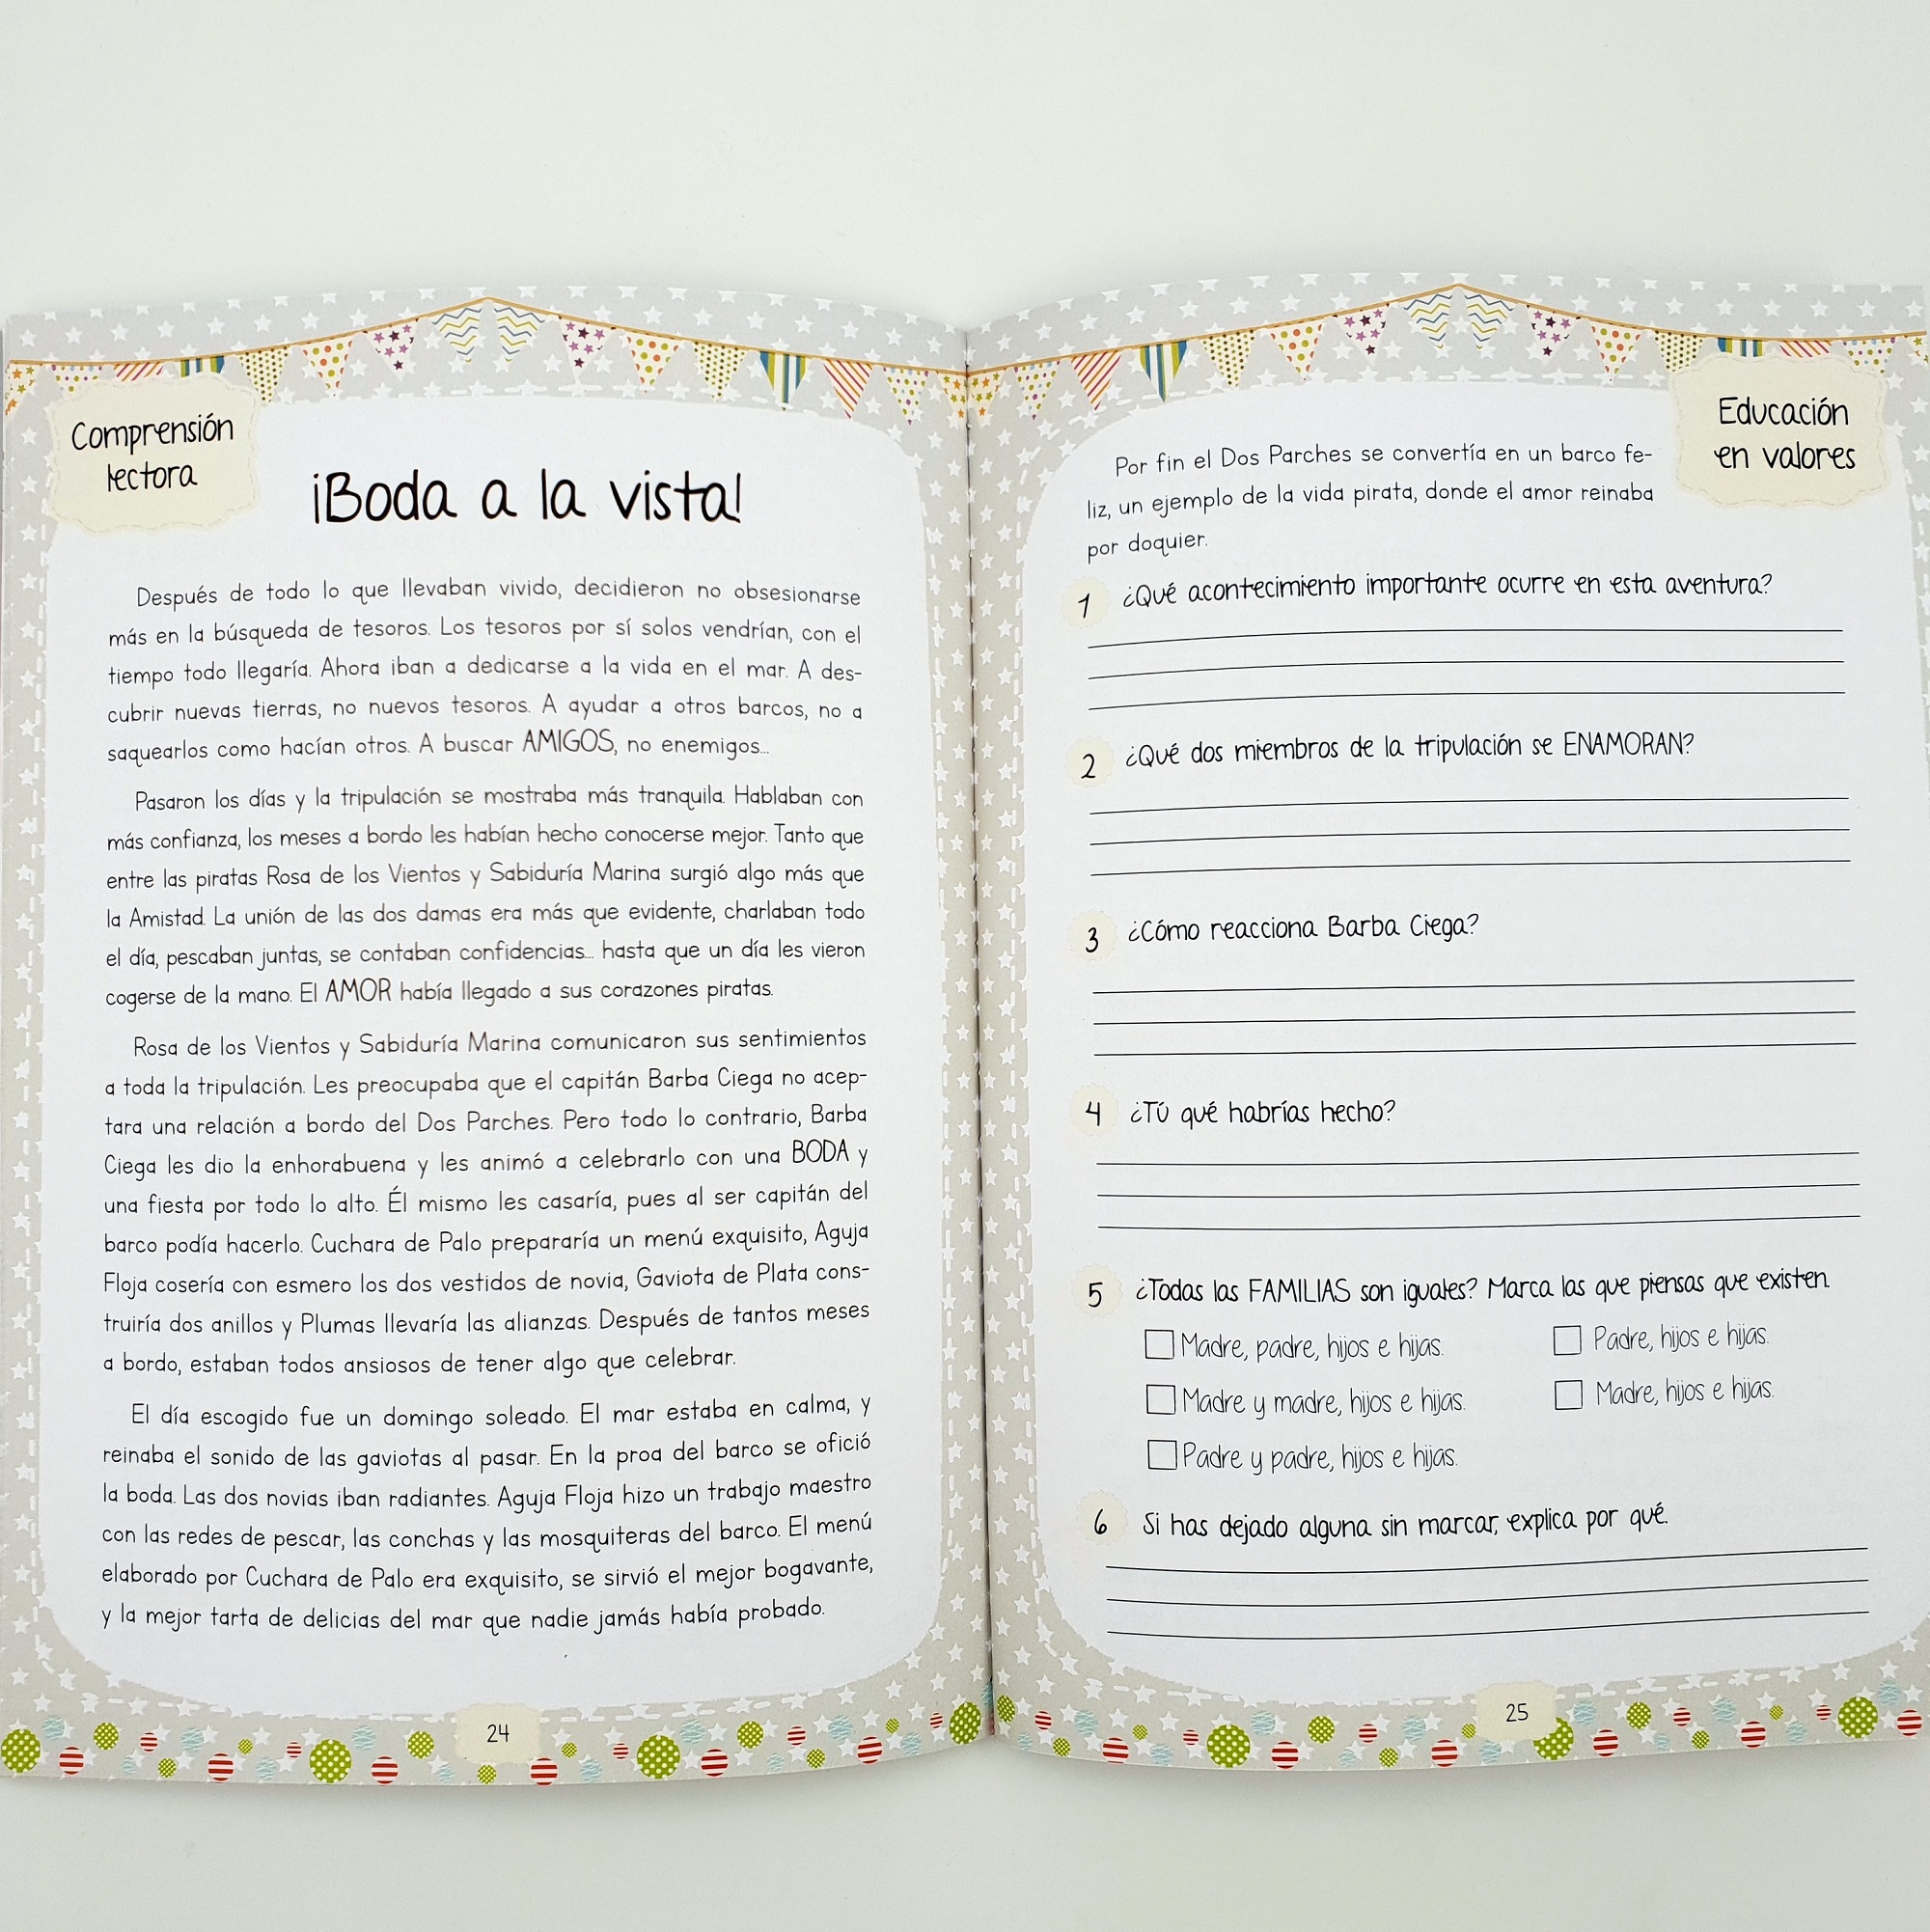 Comprensión
lectora
¡Boda a la vista!
Después de todo lo que llevaban vivido, decidieron no obsesionarse
más en la búsqueda de tesoros. Los tesoros por sí solos vendrían, con el
tiempo todo llegaría. Ahora iban a dedicarse a la vida en el mar. A des-
cubrir nuevas tierras, no nuevos tesoros. A ayudar a otros barcos, no a
saquearlos como hacían otros. A buscar AMIGOS, no enemigos...
Pasaron los días y la tripulación se mostraba más tranquila. Hablaban con
más confianza, los meses a bordo les habían hecho conocerse mejor. Tanto que
entre las piratas Rosa de los Vientos y Sabiduría Marina surgió algo más que
la Amistad. La unión de las dos damas era más que evidente, charlaban todo
el día, pescaban juntas, se contaban confidencias... hasta que un día les vieron
cogerse de la mano. El AMOR había llegado a sus corazones piratas.
Rosa de los Vientos y Sabiduría Marina comunicaron sus sentimientos
a toda la tripulación. Les preocupaba que el capitán Barba Ciega no acep-
tara una relación a bordo del Dos Parches. Pero todo lo contrario, Barba
Ciega les dio la enhorabuena y les animó a celebrarlo con una BODA y
una fiesta por todo lo alto. Él mismo les casaría, pues al ser capitán del
barco podía hacerlo. Cuchara de Palo prepararía un menú exquisito, Aguja
Floja cosería con esmero los dos vestidos de novia, Gaviota de Plata cons-
truiría dos anillos y Plumas llevaría las alianzas. Después de tantos meses
a bordo, estaban todos ansiosos de tener algo que celebrar.
El día escogido fue un domingo soleado. El mar estaba en calma, y
reinaba el sonido de las gaviotas al pasar. En la proa del barco se ofició
la boda. Las dos novias iban radiantes. Aguja Floja hizo un trabajo maestro
con las redes de pescar, las conchas y las mosquiteras del barco. El menú
elaborado por Cuchara de Palo era exquisito, se sirvió el mejor bogavante,
y la mejor tarta de delicias del mar que nadie jamás había probado.
24
Educación
en valores
Por fin el Dos Parches se convertía en un barco fe-
liz, un ejemplo de la vida pirata, donde el amor reinaba
por doquier.
1 ¿Qué acontecimiento importante ocurre en esta aventura?
2 ¿Qué dos miembros de la tripulación se ENAMORAN?
3 ¿Cómo reacciona Barba Ciega?
4 ¿Tú qué habrías hecho?
5 ¿Todas las FAMILIAS son iguales? Marca las que piensas que existen.
Madre, padre, hijos e hijas.
Padre, hijos e hijas.
Madre y madre, hijos e hijas.
Madre, hijos e hijas.
Padre y padre, hijos e hijas.
6 Si has dejado alguna sin marcar, explica por qué.
25